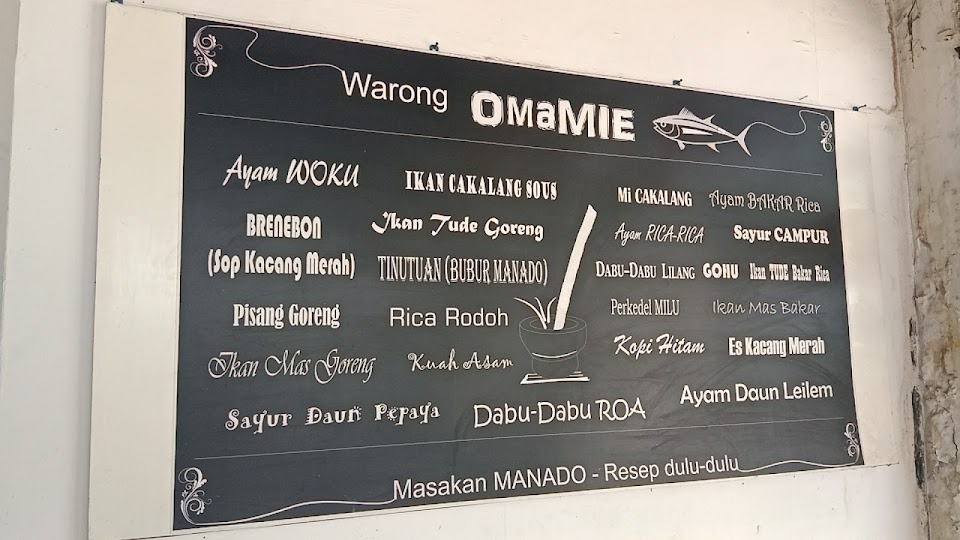 Warong OMaMIE
Ayam WOKU
IKAN CAKALANG SOUS
Mi CAKALANG
Ayam BAKAR Rica
BRENEBON
(Sop Kacang Merah)
Ikan Tude Goreng
Ayam RICA-RICA
Sayur CAMPUR
TINUTUAN (BUBUR MANADO)
DABU-DABU LILANG
GOHU
Ikan TUDE Bakar Rica
Pisang Goreng
Rica Rodoh
Perkedel MILU
Ikan Mas Bakar
Ikan Mas Goreng
Kuah Asam
Kopi Hitam
Es Kacang Merah
Sayur Daun Pepaya
Dabu-Dabu ROA
Ayam Daun Leilem
Masakan MANADO - Resep dulu-dulu